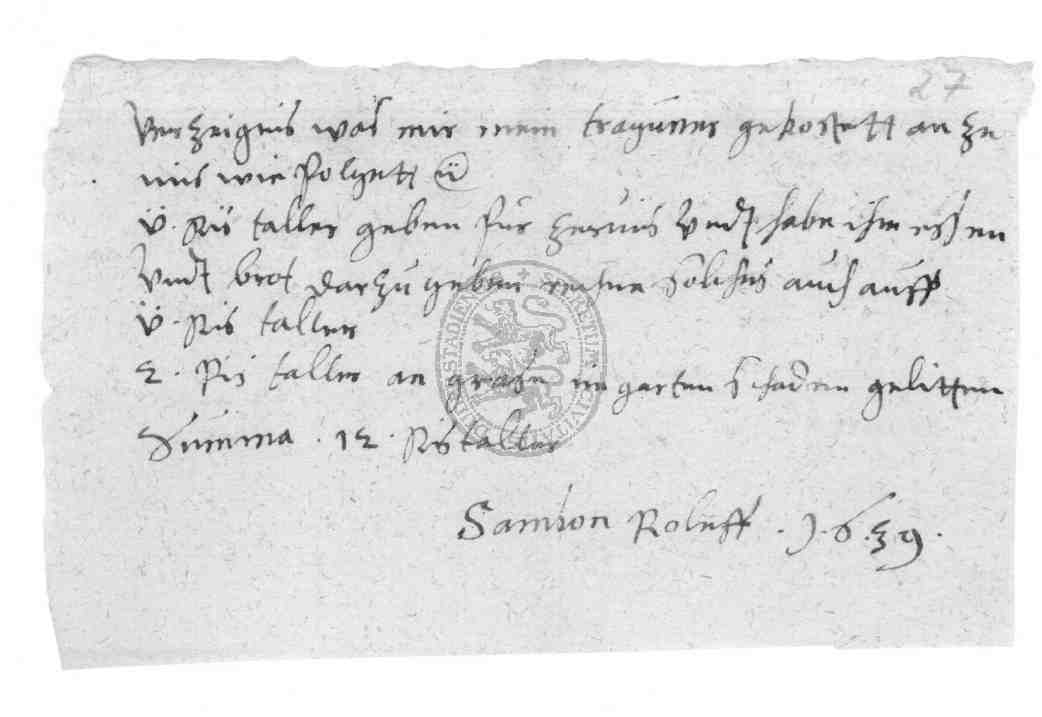 27
Verzeignis was mir mein tragunner gekostett an ze
rnis wie folgett
v. Ris taller geben fur zernis vndt habe ihm essen
vndt brot darzu geben rechne solches auch auff
v. Ris taller
2. Ris taller an grase im garten schaden gelitten
Summa . 12 . Ristaller
Samson Roleff . 1.6.39.